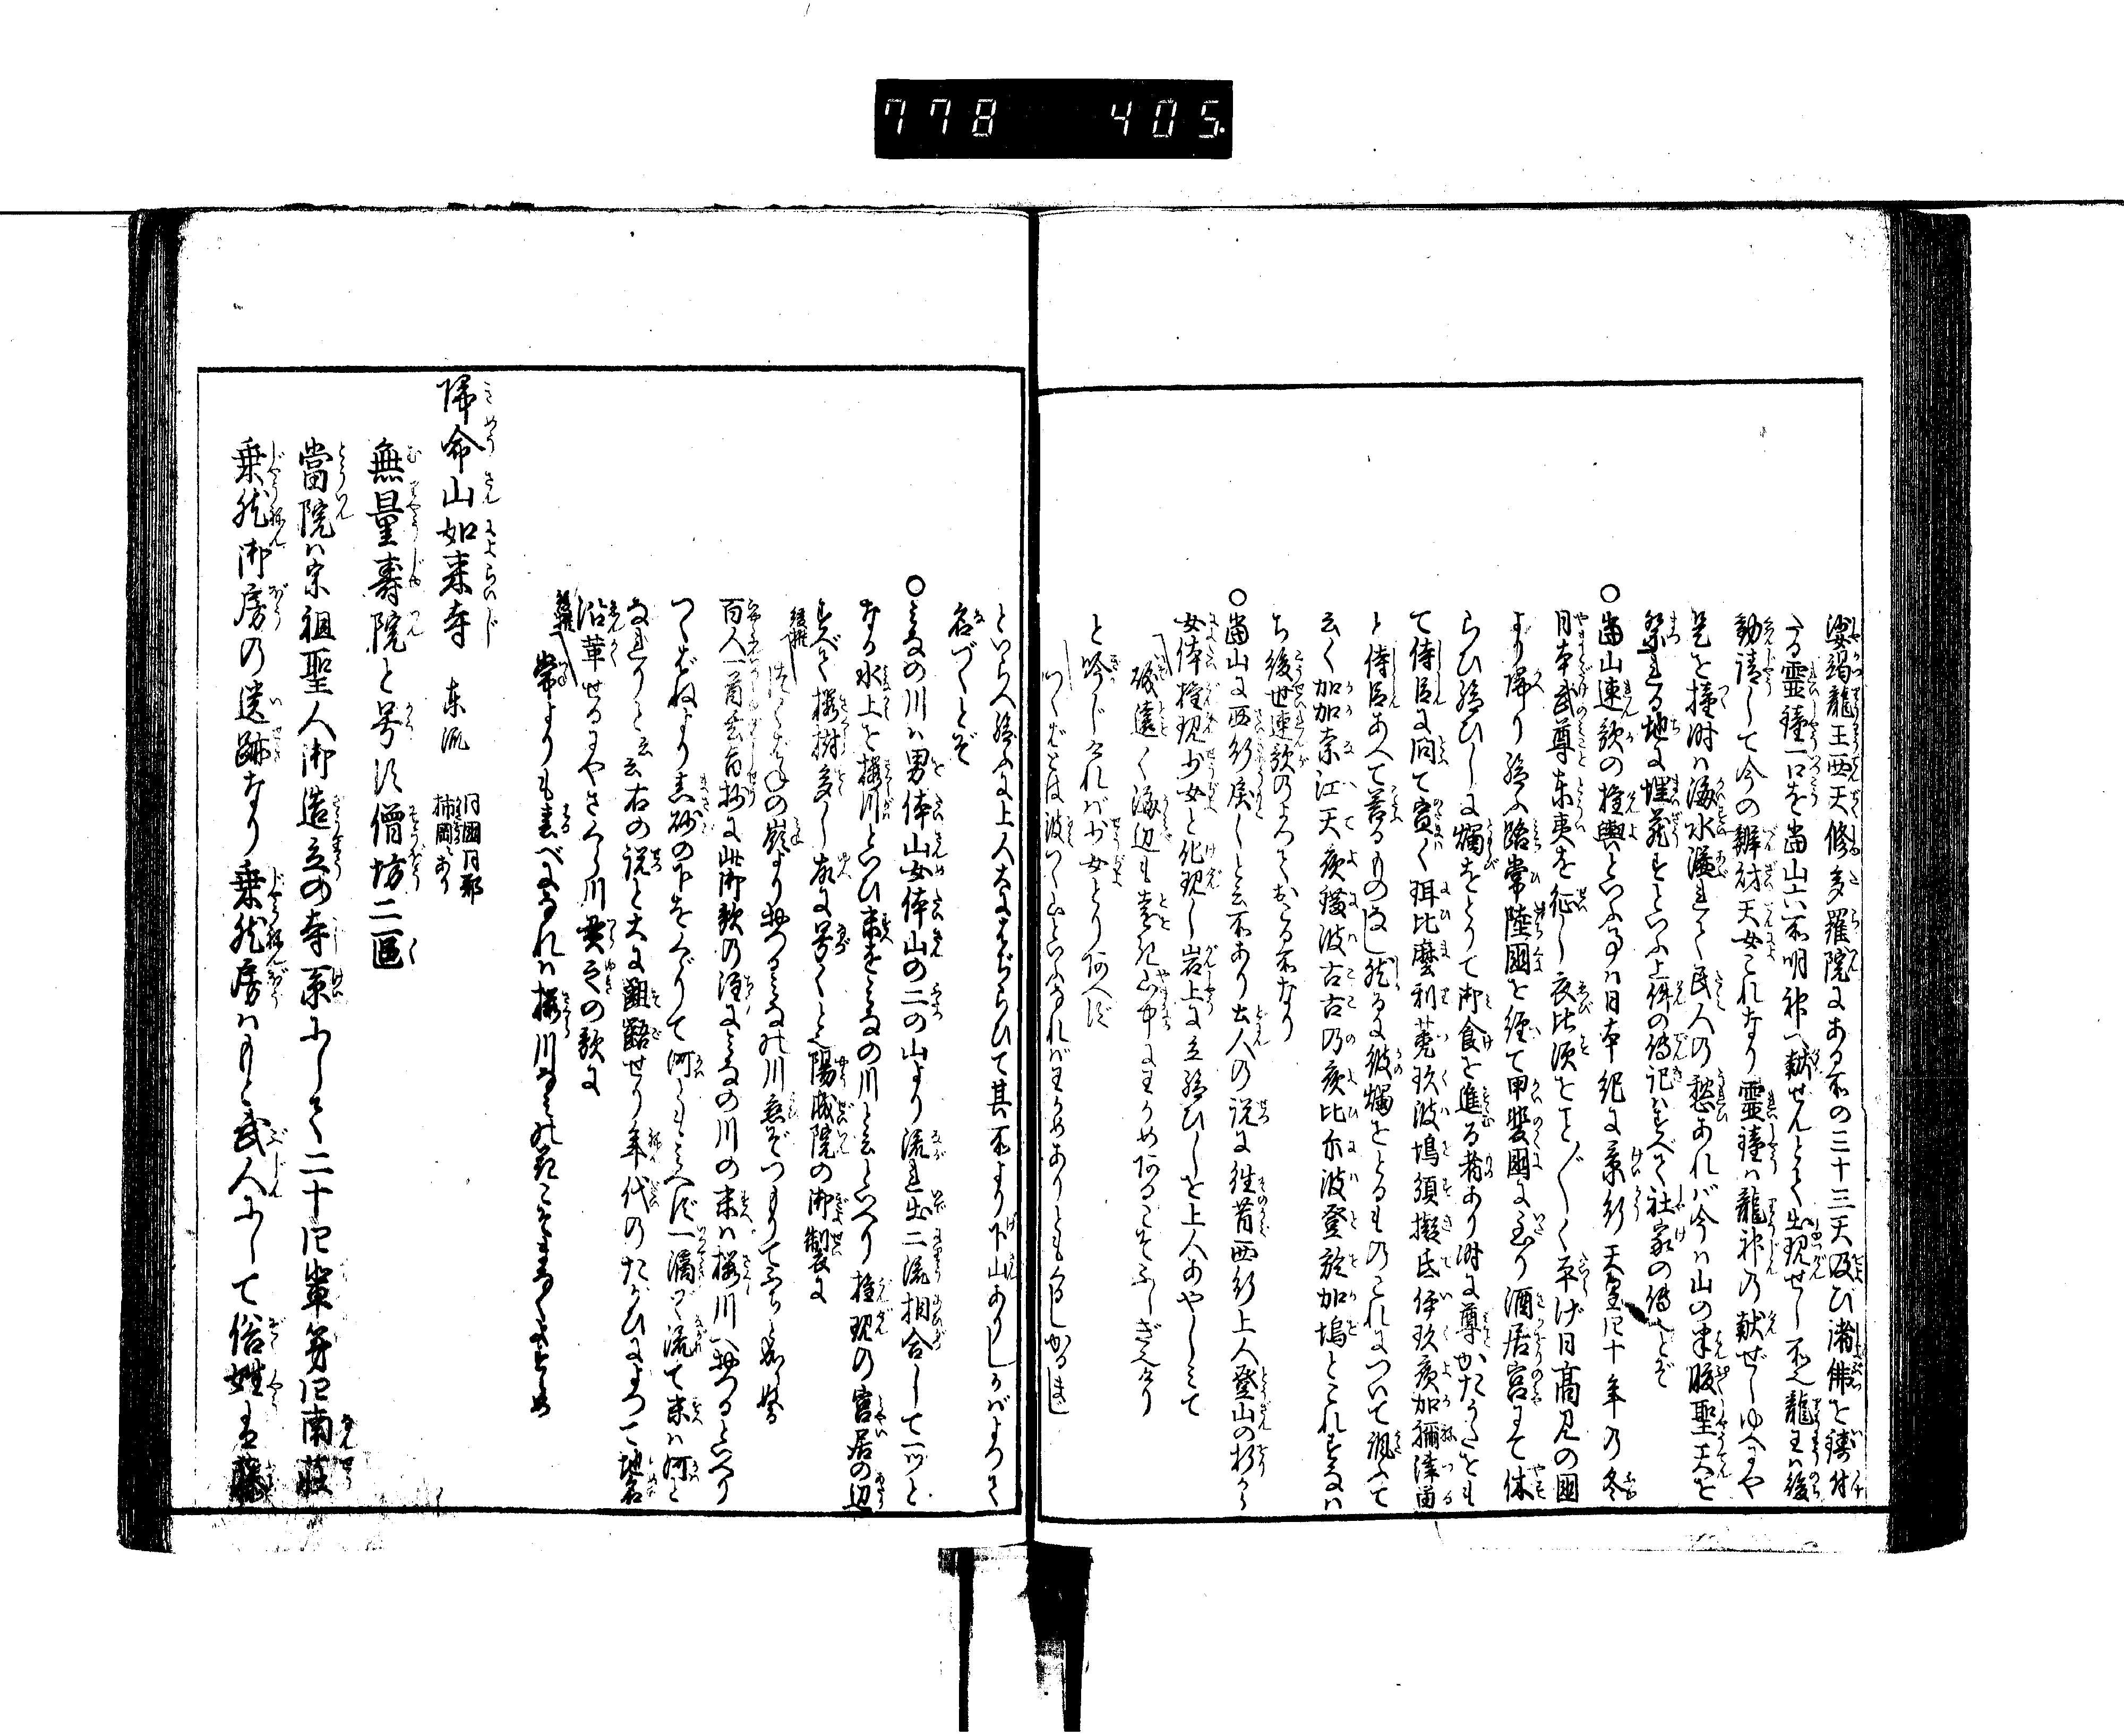 778 405
娑竭龍王西天修多羅院にある所の三十三天及び諸佛を鋳付
たる靈鐘一口を當山六所明神へ献せんとて出現せし所也龍王ハ後
勧請して今の辨財天女これなり靈鐘ハ龍神の献ぜしゆへにや
是を撞時ハ海水溢れて民人の愁あれバ今ハ山の半腹聖天を
祭れる地に埋蔵すといふ上件の傳記ハすべて社家の傳とぞ
○當山連歌の権輿といふ事ハ日本紀に景行天皇四十年の冬
日本武尊東夷を征し夜比須をこと〴〵く平げ日高見の國
より帰り給ふ路常陸國を経て甲斐國に至り酒居宮にて休
らひ給ひしに燭をとりて御食を進る者あり時に尊かたうたをも
て侍臣に問て宣く珥比麼利菟玖波塢須擬氐伊玖庾加禰津留
と侍臣あへて答るものなし然るに彼燭をとるものこれについて諷ふて
云く加加奈江天夜護波古古乃夜比尓波登於加塢とこれすなハ
ち後世連歌のよつておこる所なり
○當山に西行戻しと云所あり土人の説に往昔西行上人登山の折から
女体権現少女と化現し岩上に立給ひしを上人あやしミて
磯遠く海辺も遠き山中にわかめあるこそふしぎなり
と吟じけれバ少女とりあへず
つくばとは波つく山といふなれバわかめありともくるしかるまじ
といらへ給ふに上人大にはぢらひて其所より下山ありしかバよつて
名づくとぞ
○ミなの川ハ男体山女体山の二の山より流れ出二流相合して一ツと
なる水上を桜川といひ末をミなの川と云といへり権現の宮居の辺
すべて桜樹多し故に号くと也陽成院の御製に
後撰 つくばねの嶺より落るミなの川恋ぞつもりてふちと成ける
百人一首玄旨抄に此御歌の注にミなの川の末ハ桜川へ落るといへり
つくばねより真砂の下をくゞりて河とも見へず一滴づゝ流て末ハ河と
なれりと云云右の説と大に齟齬せり年代のたがひによつて地名
沿革せるにやさくら川貫之の歌に
後撰 常よりも春べになれハ桜川なミの花こそまなくよすらめ
帰命山如来寺 東派 同國同郡柿岡にあり
無量壽院と号す僧坊二區
當院ハ宗祖聖人御造立の寺系ふして二十四輩第四南荘
乗然御房の遺跡なり乗然房ハもと武人ふして俗姓は藤